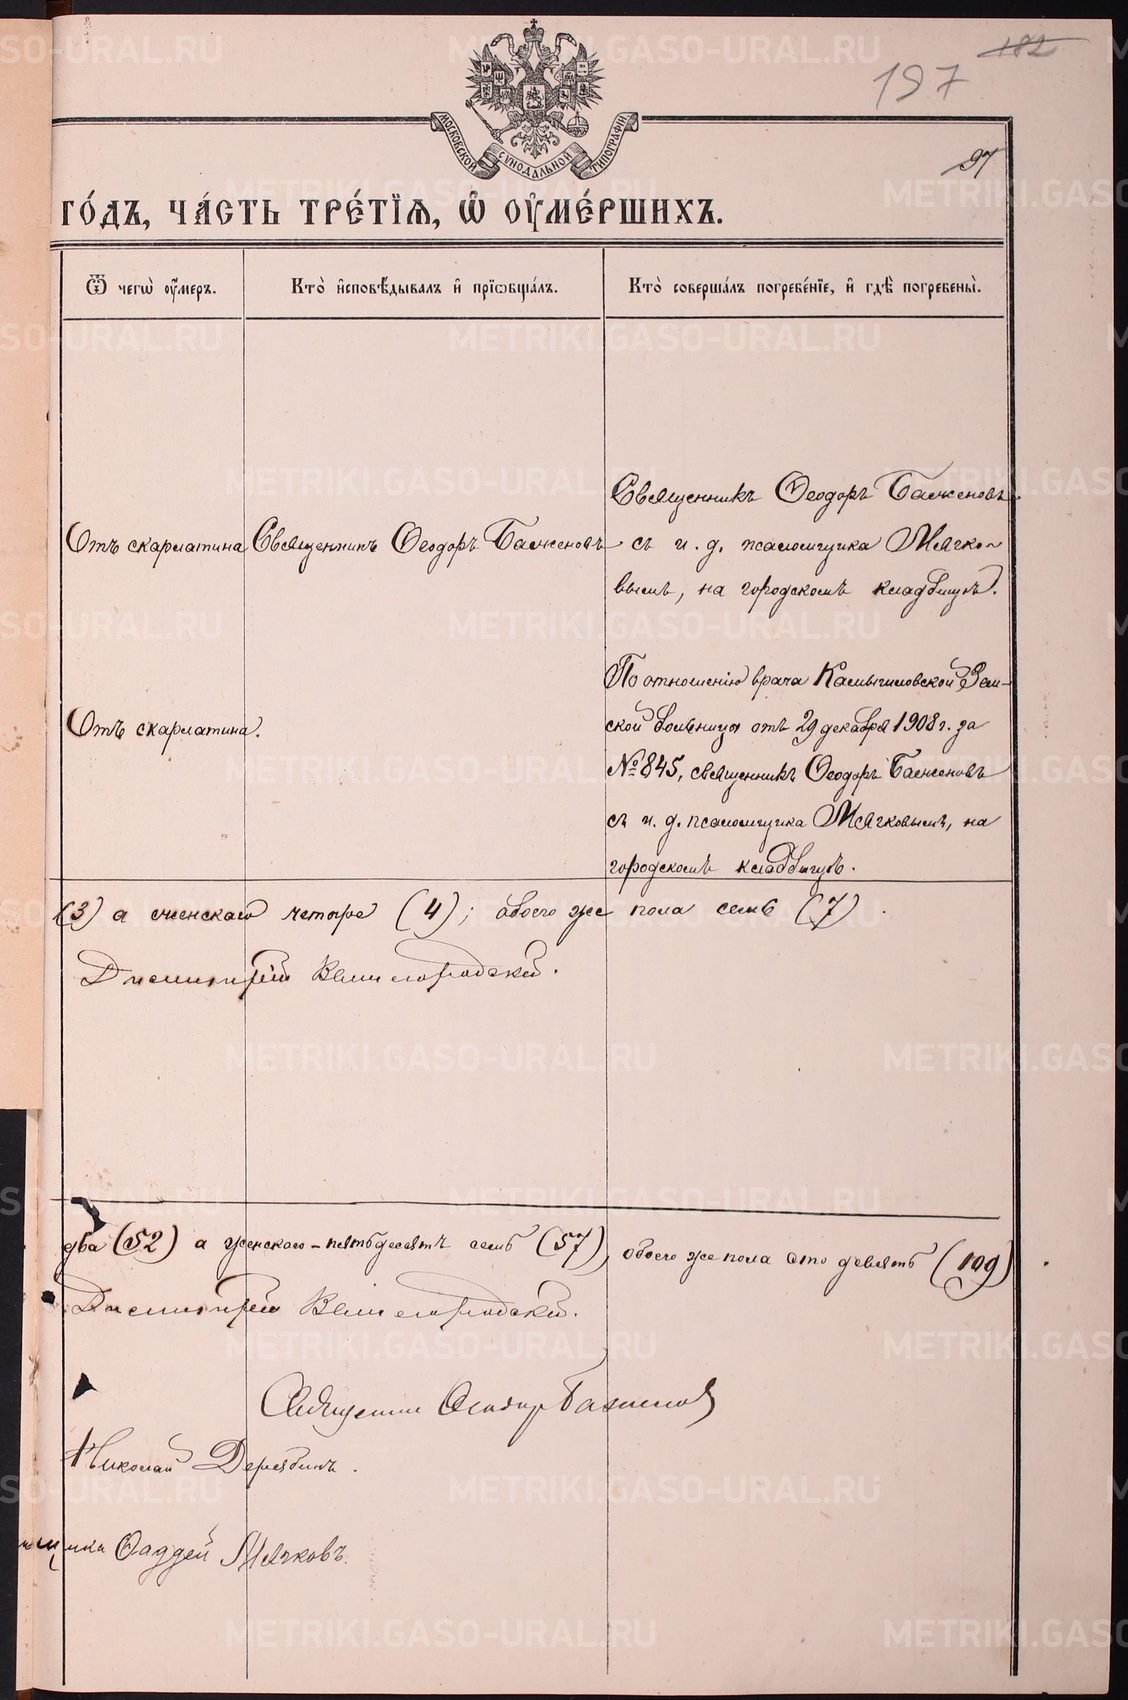 182
197
97
МОСКОВСКОЙ СѴНОДАЛЬНОЙ ТИПОГРАФІИ
ГО́ДЪ, ЧА́СТЬ ТРЕ́ТІѦ, Ѡ҆ ОУ҆МЕ́РШИХЪ.
Ѿ чегѡ̀ оу҆́меръ.
Кто̀ и҆сповѣ́дывалъ и҆ прїѡбща́лъ.
Кто̀ соверша́лъ погребе́нїе, и҆ гдѣ̀ погребены̀.
Отъ скарлатина
Священникъ Ѳеодоръ Баженовъ
Священникъ Ѳеодоръ Баженовъ
съ и. д. псаломщика Мячко-
вымъ, на городскомъ кладбищѣ.
Отъ скарлатина.
По отношенію врача Камышловской Зем-
ской больницы отъ 29 декабря 1908 г. за
№ 845, священникъ Ѳеодоръ Баженовъ
съ и. д. псаломщика Мячковымъ, на
городскомъ кладбищѣ.
(3) а женскаго четыре (4); обоего же пола семь (7)
Димитрій
два (52) а женскаго - пятьдесятъ семь (57), обоего же пола сто девять (109)
Димитрій
Священникъ Ѳеодоръ Баженовъ
Николай Дерябинъ.
Ѳаддей Мячковъ.
METRIKI.GASO-URAL.RU